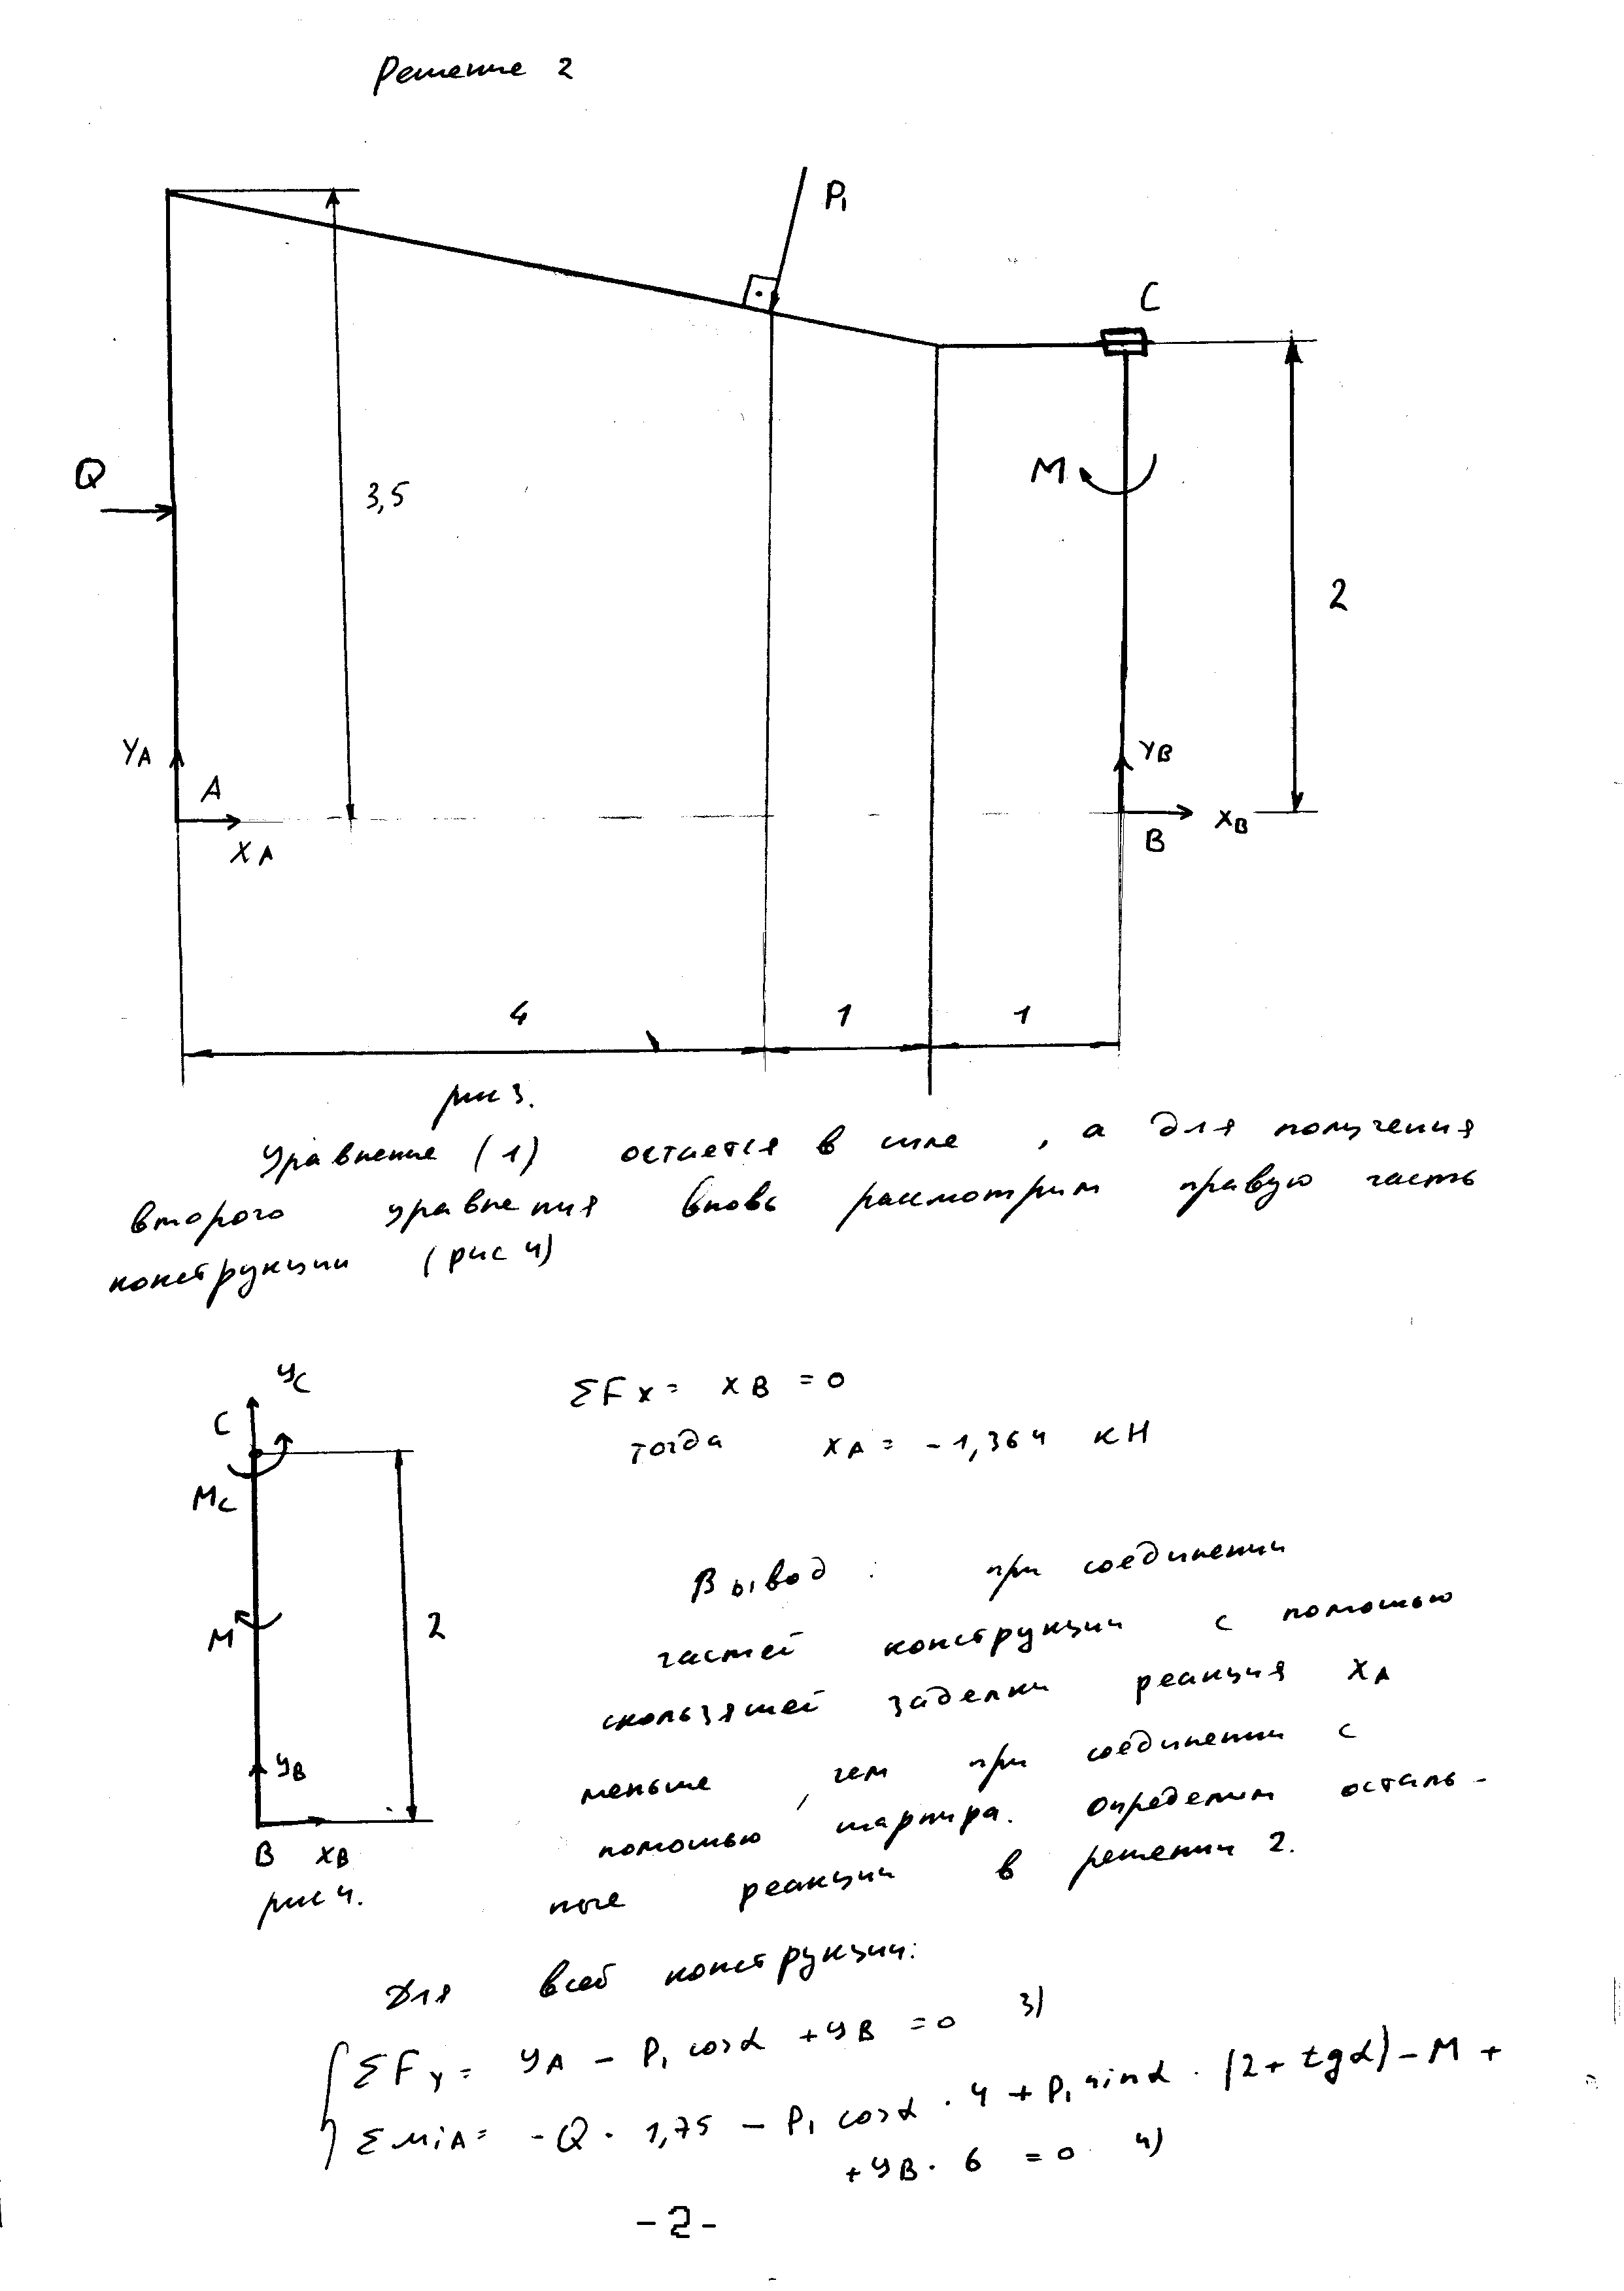 Решение 2
P₁
C
Q
3,5
M
2
YA
A
XA
YB
XB
B
4
1
1
рис 3.
Уравнение (1) остается в силе, а для получения
второго уравнения вновь рассмотрим правую часть
конструкции (рис 4)
YC
C
MC
M
2
YB
B XB
рис 4.
ΣFx = XB = 0
тогда XA = -1,364 кН
Вывод: при соединении
частей конструкции с помощью
скользящей заделки реакция XA
меньше, чем при соединении с
помощью шарнира. Определим осталь-
ные реакции в решении 2.
Для всей конструкции:
ΣFy = YA - P₁ cosα + YB = 0 3)
ΣMiA = -Q · 1,75 - P₁ cosα · 4 + P₁ sinα · (2 + tgα) - M +
+ YB · 6 = 0 4)
-2-